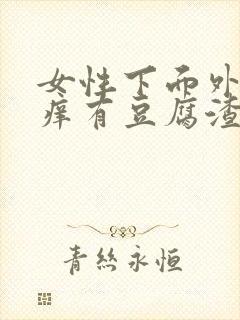 女性下面外
痒有豆腐渣
青丝永恒